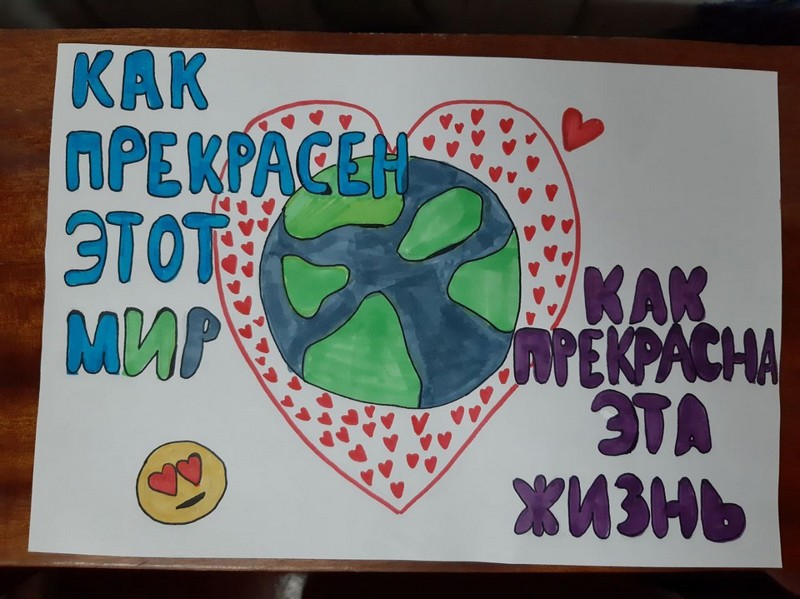 КАК
ПРЕКРАСЕН
ЭТОТ
МИР
КАК
ПРЕКРАСНА
ЭТА
ЖИЗНЬ